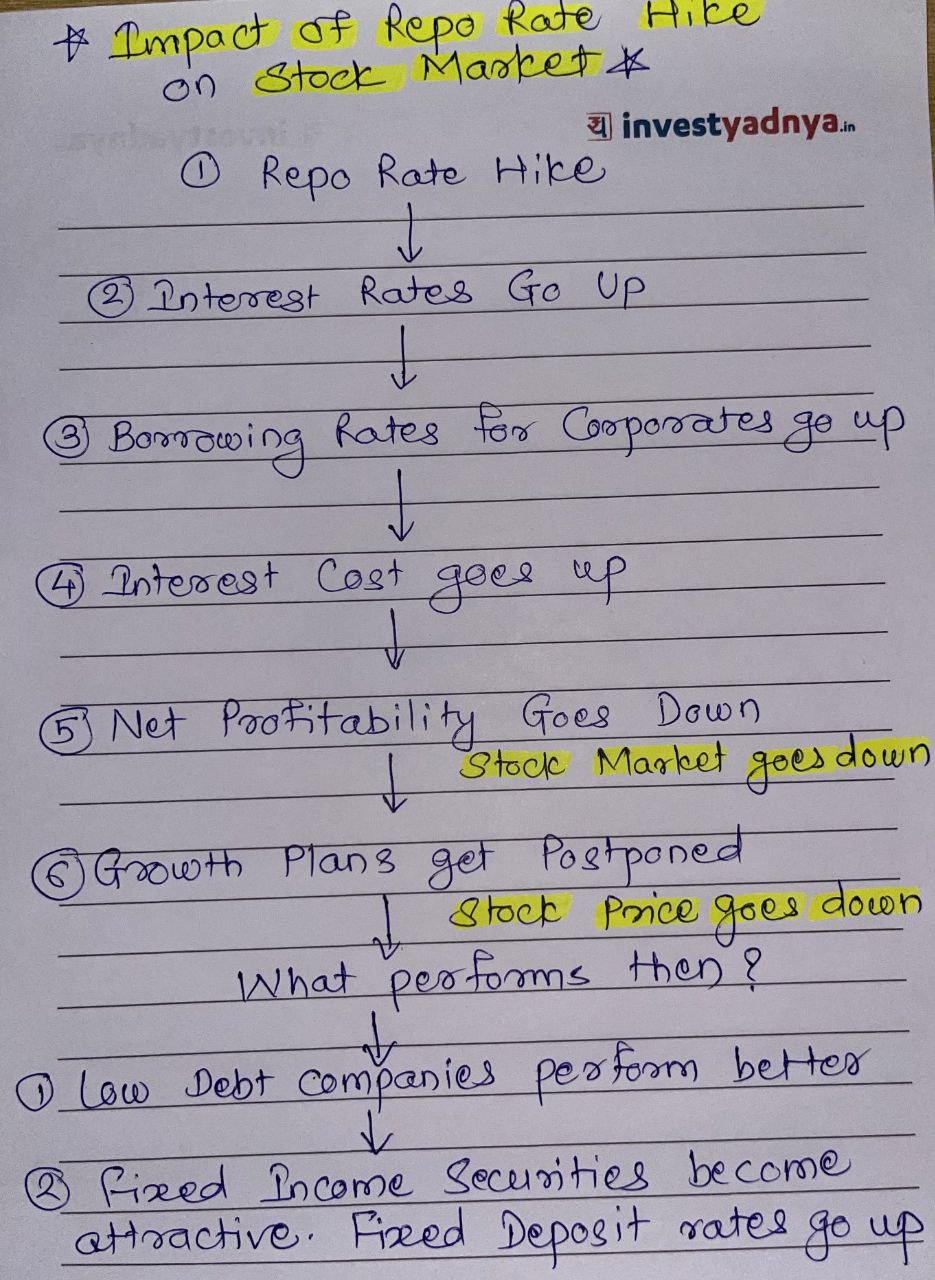 ☆ Impact of Repo Rate Hike
on Stock Market ☆
य investyadnya.in
① Repo Rate Hike
↓
② Interest Rates Go Up
↓
③ Borrowing Rates for Corporates go up
↓
④ Interest Cost goes up
↓
⑤ Net Profitability Goes Down
↓ Stock Market goes down
⑥ Growth Plans get Postponed
↓ Stock Price goes down
What performs then?
↓
① Low Debt companies perform better
↓
② Fixed Income Securities become
attractive. Fixed Deposit rates go up